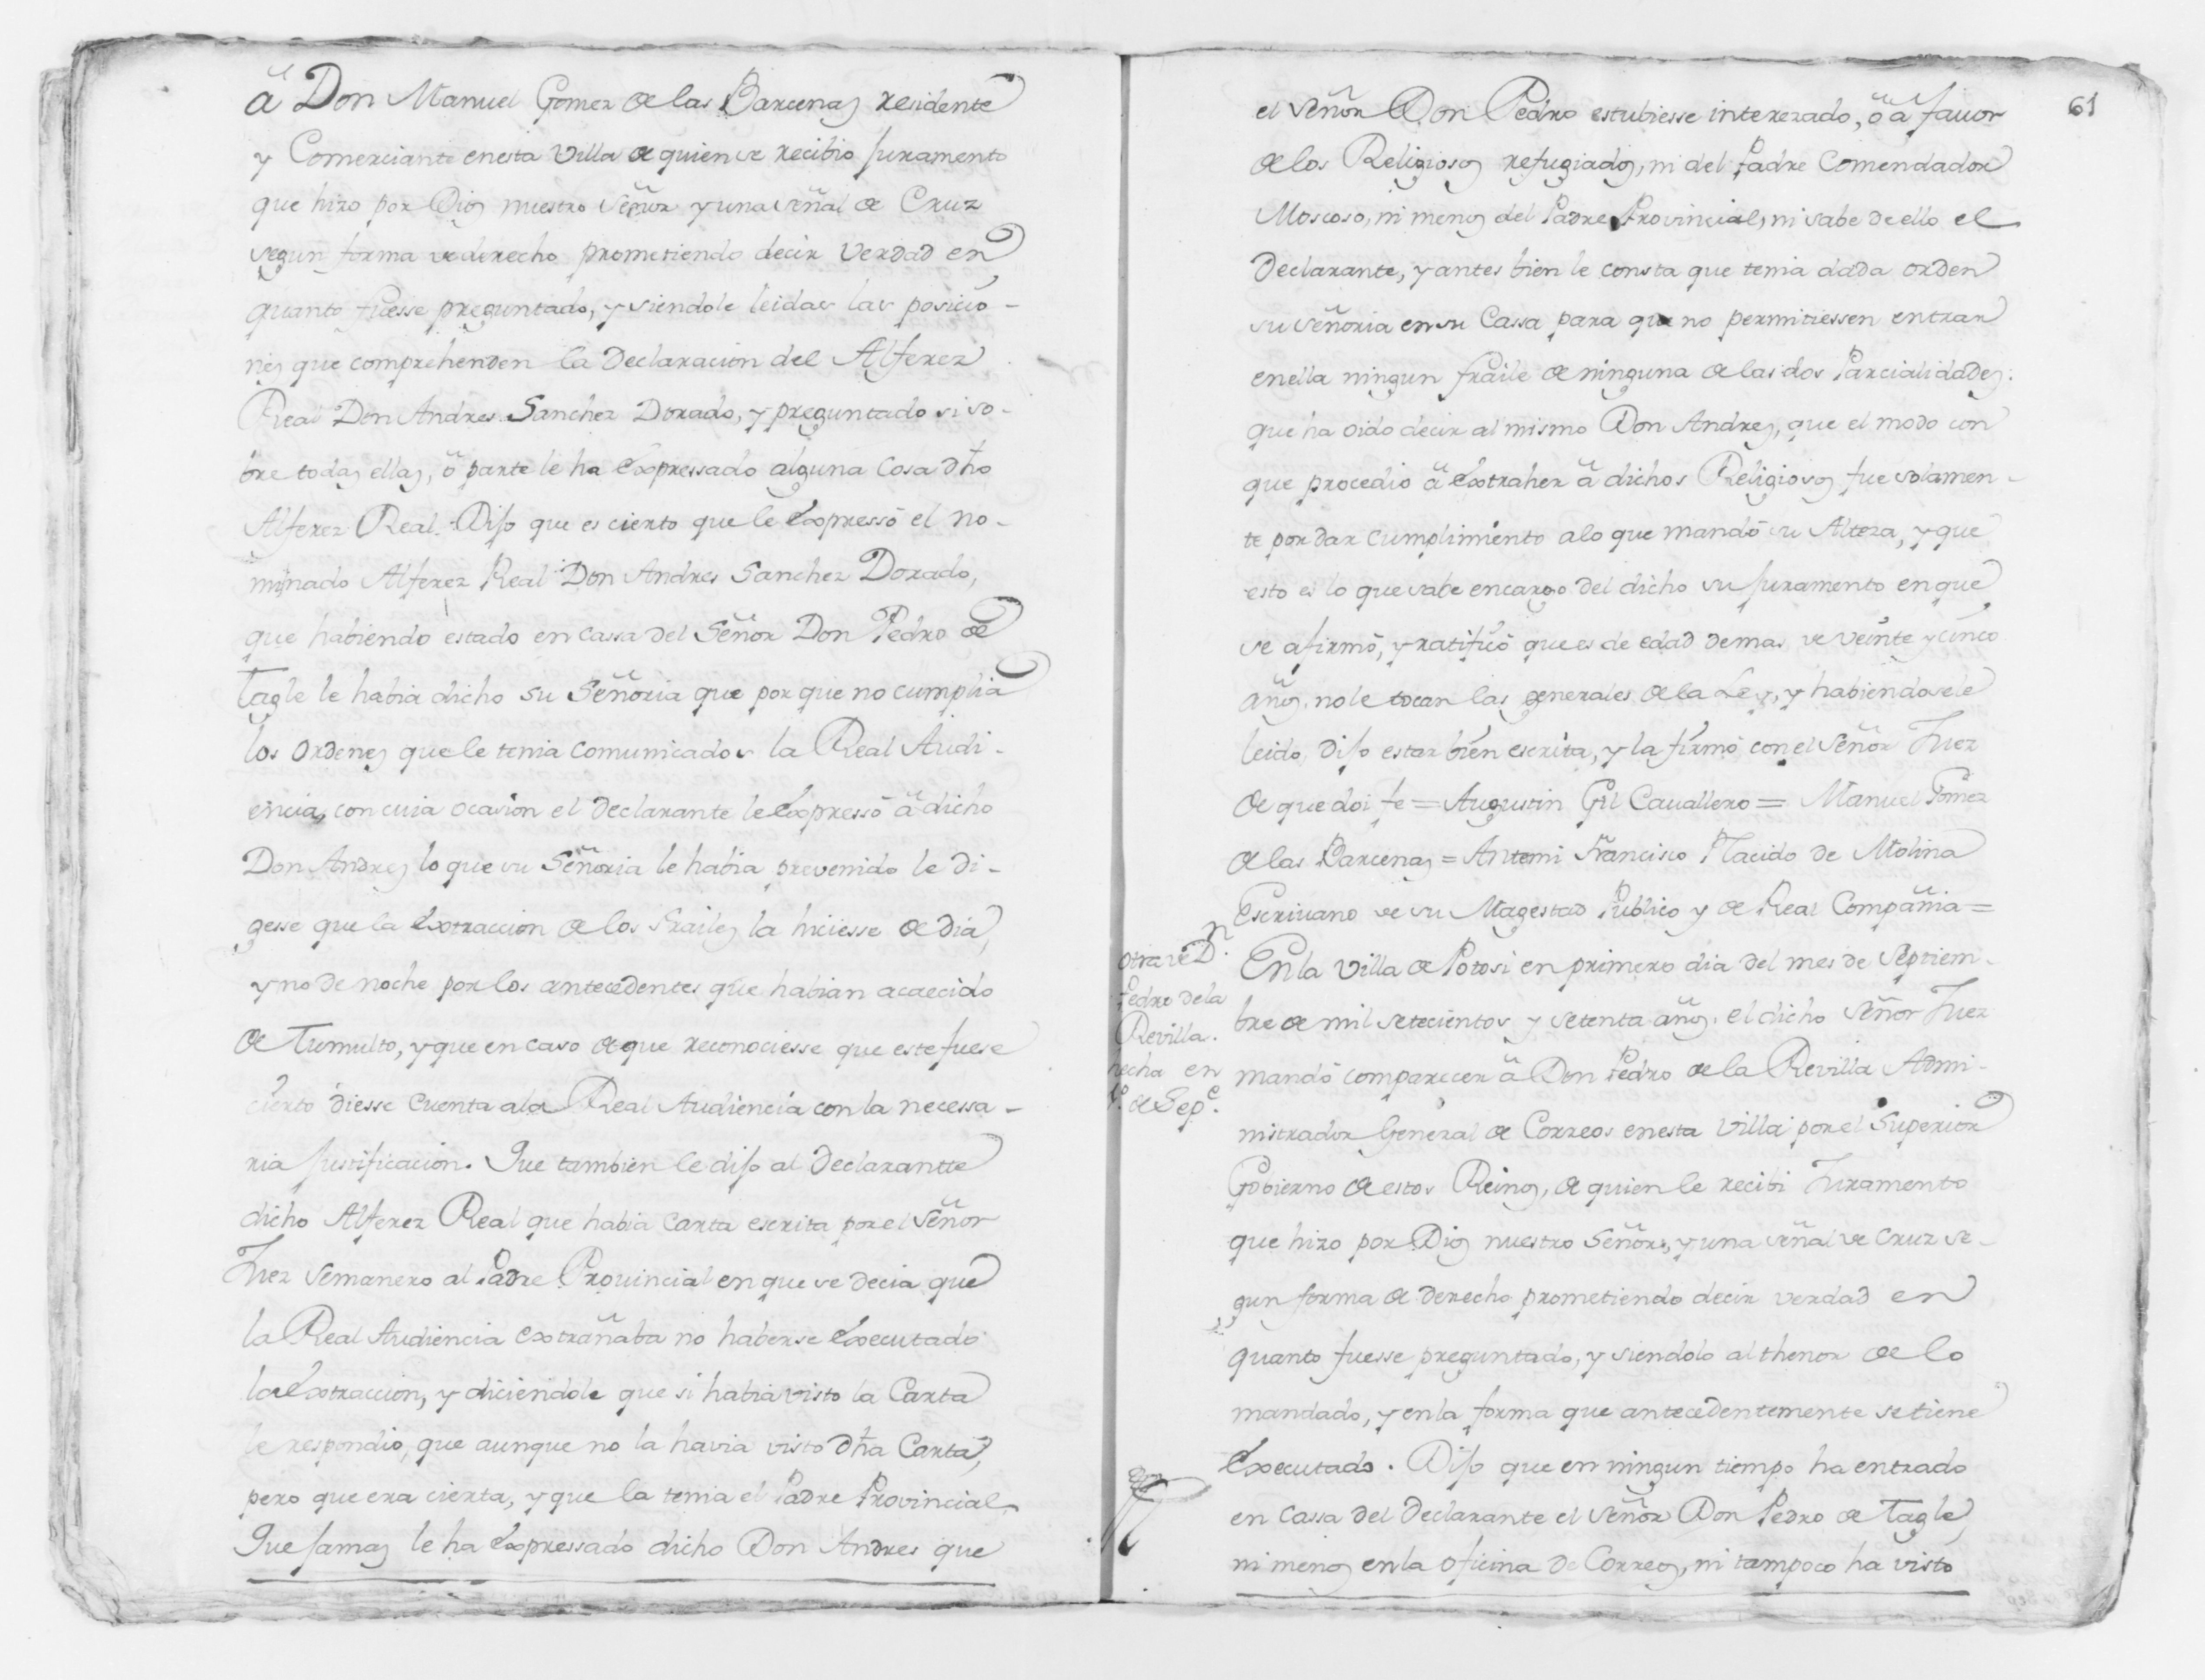 â Don Manuel Gomez de las Barcenas residente
y Comerciante enesta Villa de quien se recibio Juramento
que hizo por Dios nuestro Señor y una señal de Cruz
segun forma de derecho prometiendo decir Verdad en
quanto fuesse preguntado, y siendole leidas las posicio-
nes que comprehenden la Declaracion del Alferez
Real Don Andres Sanchez Dorado, y preguntado si so-
bre todas ellas, ô parte le ha expressado alguna cosa dho
Alferez Real. Dijo que es cierto que le expressó el no-
minado Alferez Real Don Andres Sanchez Dorado,
que habiendo estado en cassa del Señor Don Pedro de
Tagle le habia dicho su Señoria que por que no cumplia
los ordenes que le tenia comunicados la Real Audi-
encia, con cuia ocasion el declarante le expressó â dicho
Don Andres lo que su Señoria le habia prevenido le di-
gesse que la extraccion de los Frailes la hiciesse de dia,
y no de noche por los antecedentes que habian acaecido
de Tumulto, y que en caso de que reconociesse que este fuese
cierto diesse cuenta ala Real Audiencia con la necessa-
ria justificacion. Que tambien le dijo al Declarantte
dicho Alferez Real que habia carta escrita por el Señor
Juez Semanero al Padre Provincial en que se decia que
la Real Audiencia extrañaba no haberse executado
la extraccion, y diciendole que si habia visto la Carta
le respondio, que aunque no la havia visto dha Carta,
pero que era cierta, y que la tenia el Padre Provincial
Que jamas le ha expressado dicho Don Andres que
61
el Señor Don Pedro estubiesse interezado, ô â favor
de los Religiosos refugiados, ni del Padre Comendador
Moscoso, ni menos del Padre Provincial, ni sabe de ello el
Declarante, y antes bien le consta que tenia dada orden
su señoria en su Cassa para que no permitiessen entrar
enella ningun fraile de ninguna de las dos Parcialidades.
que ha oido decir al mismo Don Andres, que el modo con
que procedio â extraher â dichos Religiosos fue solamen-
te por dar cumplimiento alo que mandó su Alteza, y que
esto es lo que sabe encargo del dicho su juramento en que
se afirmó, y ratificó que es de edad demas de veinte y cinco
años, no le tocan las generales de la Ley, y habiendosele
leido, dijo estar bien escrita, y la firmó con el Señor Juez
de que doi fe = Augustin Gil Cavallero = Manuel Gomez
de las Barcenas = Antemi Francisco Placido de Molina
Escrivano de su Magestad Publico y de Real Compañia =
Otra de Dn.
Pedro dela
Revilla.
hecha en
1º. de Sepe.
En la Villa de Potosi en primero dia del mes de Septiem-
bre de mil setecientos y setenta años. el dicho Señor Juez
mandó comparecer â Don Pedro de la Revilla Admi-
nistrador General de Correos enesta Villa por el Superior
Gobierno de estos Reinos, de quien le recibi Juramento
que hizo por Dios nuestro Señor, y una señal de Cruz se-
gun forma de derecho prometiendo decir verdad en
quanto fuesse preguntado, y siendolo al thenor de lo
mandado, y en la forma que antecedentemente se tiene
executado. Dijo que en ningun tiempo ha entrado
en cassa del Declarante el Señor Don Pedro de Tagle,
ni menos en la oficina de Correos, ni tampoco ha visto